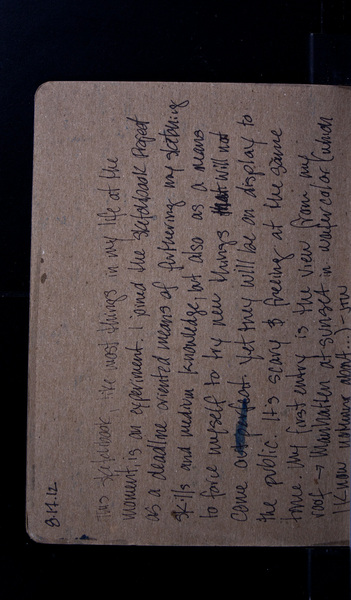 8.17.12
This sketchbook, like most things in my life at the
moment, is an experiment. I joined the Sketchbook Project
as a deadline oriented means of furthering my sketching
skills and medium knowledge, but also as a means
to force myself to try new things that will not
come out perfect. Yet they will be on display to
the public. It's scary & freeing at the same
time. My first entry is the view from my
roof → Manhattan at sunset in watercolor (which
I know nothing about...)